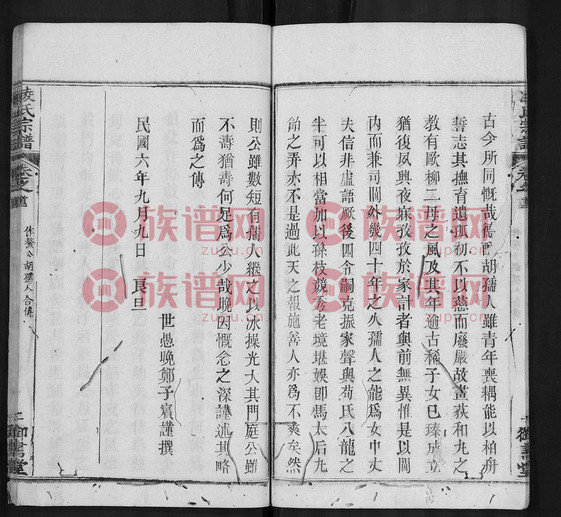 古今所同慨哉德配胡孺人雖青年喪耦能以柏舟
誓志其撫育遺孤初不以慈而廢嚴故畫荻和丸之
教有歐柳二母之風及其年逾古稀子女已臻成立
猶復夙興夜寐孜孜於家計者與前無異惟是以閫
內而兼司閫外幾四十年之久孺人之能為女中丈
夫信非虛語厥後四爺嗣克振家聲與荀氏八龍之
半可以相當加以孫枝競秀老境堪娛即馬太后九
飴之弄亦不是過此天之報施善人亦為不爽矣然
則公雖數短有孺人繼之以冰操光大其門庭公雖
不壽猶壽何足為公少哉晚因慨念之深謹述其略
而為之傳
世愚晚鄭子賓謹撰
民國六年九月九日 良旦
凌氏宗譜
胡孺人合傳
御書堂
族谱网
zupu.cn